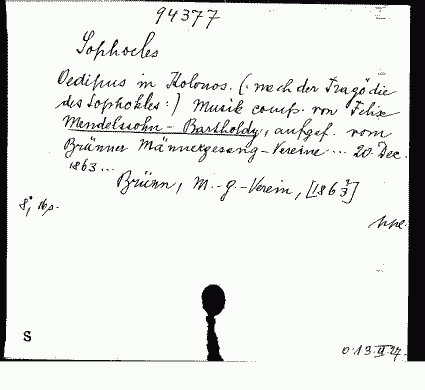 94377
Sophocles
Oedipus in Kolonos. (: nach der Tragödie
des Sophokles :) Musik comp. von Felix
Mendelssohn-Bartholdy, aufgef. vom
Brünner Männergesang-Vereine ... 20. Dec.
1863...
Brünn, M.-g.-Verein, [1863?]
8°, 16 p.
S
0.13.VI.27.